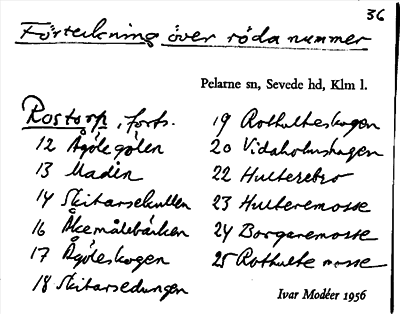 36
Förteckning över röda nummer
Pelarne sn, Sevede hd, Klm l.
Rostorp, forts.
12 Ågölegölen
13 Maden
14 Skitarekullen
16 Åkemålebäcken
17 Ågöleskogen
18 Skitarsedungen
19 Rothulteskogen
20 Vidaholmshagen
22 Hulterebro
23 Hulteremosse
24 Borgaremosse
25 Rothulte mosse
Ivar Modéer 1956